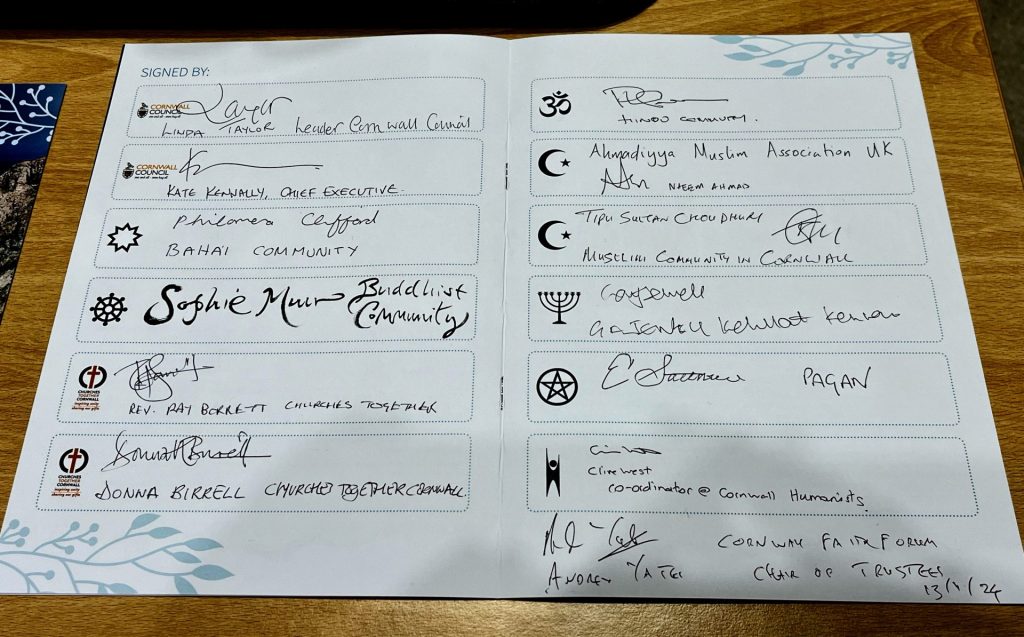 SIGNED BY:
CORNWALL
COUNCIL
one and all - onen hag oll
LINDA TAYLOR Leader Cornwall Council
CORNWALL
COUNCIL
one and all - onen hag oll
KATE KENNALLY, CHIEF EXECUTIVE.
Philomena Clifford
BAHA'I COMMUNITY
Sophie Muir Buddhist
Community
CHURCHES
TOGETHER
CORNWALL
REV. RAY BORRETT CHURCHES TOGETHER
CHURCHES
TOGETHER
CORNWALL
DONNA BIRRELL CHURCHES TOGETHER CORNWALL.
HINDU COMMUNITY.
Ahmadiyya Muslim Association UK
NAEEM AHMAD
TIPU SULTAN CHOUDHURY
MUSLIM COMMUNITY IN CORNWALL
Kehillat Kernow
PAGAN
Clive West
co-ordinator @ Cornwall Humanists.
CORNWALL FAITH FORUM
ANDREW YATES CHAIR OF TRUSTEES